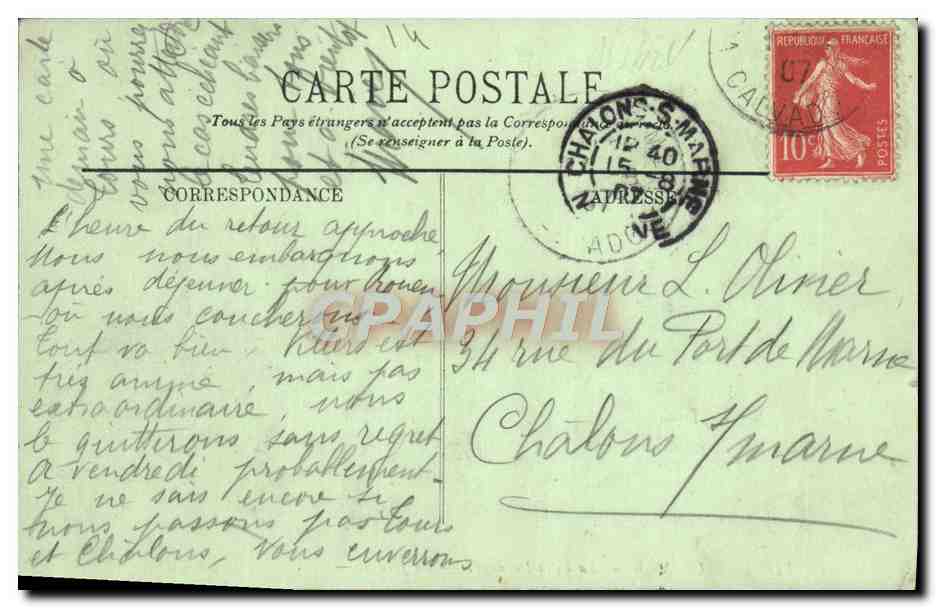 CARTE POSTALE
Tous les Pays étrangers n'acceptent pas la Correspondance au recto
(Se renseigner à la Poste).
CORRESPONDANCE
ADRESSE
REPUBLIQUE FRANÇAISE
10c
POSTES
07
CALVADOS
CHALONS-S-MARNE
12 40
15 8
ADO
14
L'heure du retour approche
Nous nous embarquons
après déjeuner pour Rouen
d'où nous coucherons.
Tout va bien. Villers est
très animé, mais pas
extraordinaire, nous
le quitterons sans regret
a vendredi probablement.
Je ne sais encore si
nous passons pas Tours
et Châlons, vous enverrons
une carte
demain à
Tours où
vous pourrez
nous attendre
le cas échéant
Tendres baisers
pour tous
et à bientôt
Monsieur L. Olivier
34 rue du Port de Marne
Châlons s/marne
CPAPHIL